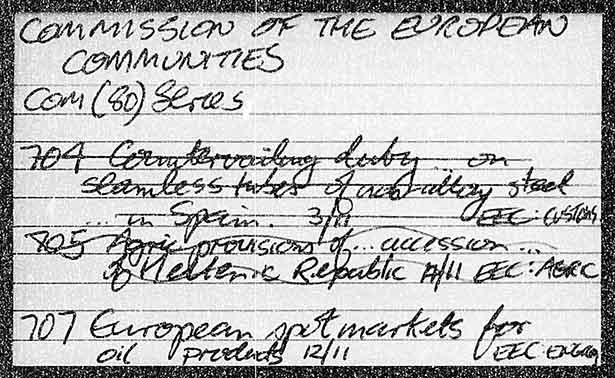 COMMISSION OF THE EUROPEAN
COMMUNITIES
COM (80) Series
704 Countervailing duty ... on
seamless tubes of non-alloy steel
... in Spain. 3/11 EEC: CUSTOMS
705 Agric provisions of ... accession ...
of Hellenic Republic 12/11 EEC: AGRIC
707 European spot markets for
oil products 12/11 EEC: ENERG